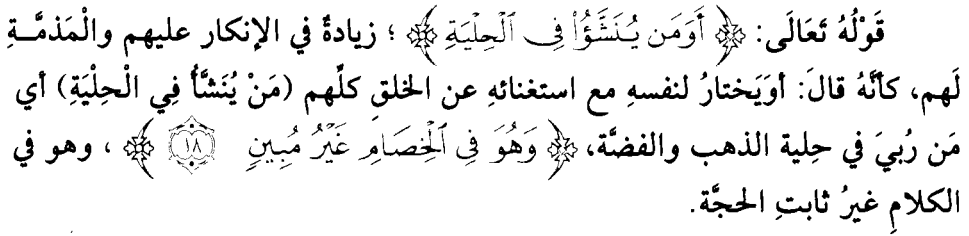 قَوْلُهُ تَعَالَى: ﴿ أَوَمَن يُنَشَّؤُاْ فِى ٱلْحِلْيَةِ ﴾ ؛ زيادةٌ في الإنكار عليهم والْمَذمَّـةِ
لَهم، كأنَّهُ قالَ: أوَيَختارُ لنفسهِ مع استغنائهِ عن الخلقِ كلِّهم (مَنْ يُنَشَّأُ فِي الْحِلْيَةِ) أي
مَن رُبيَ في حِلية الذهب والفضَّة، ﴿ وَهُوَ فِى ٱلْخِصَامِ غَيْرُ مُبِينٍ ١٨ ﴾ ، وهو في
الكلامِ غيرُ ثابتِ الحجَّة.